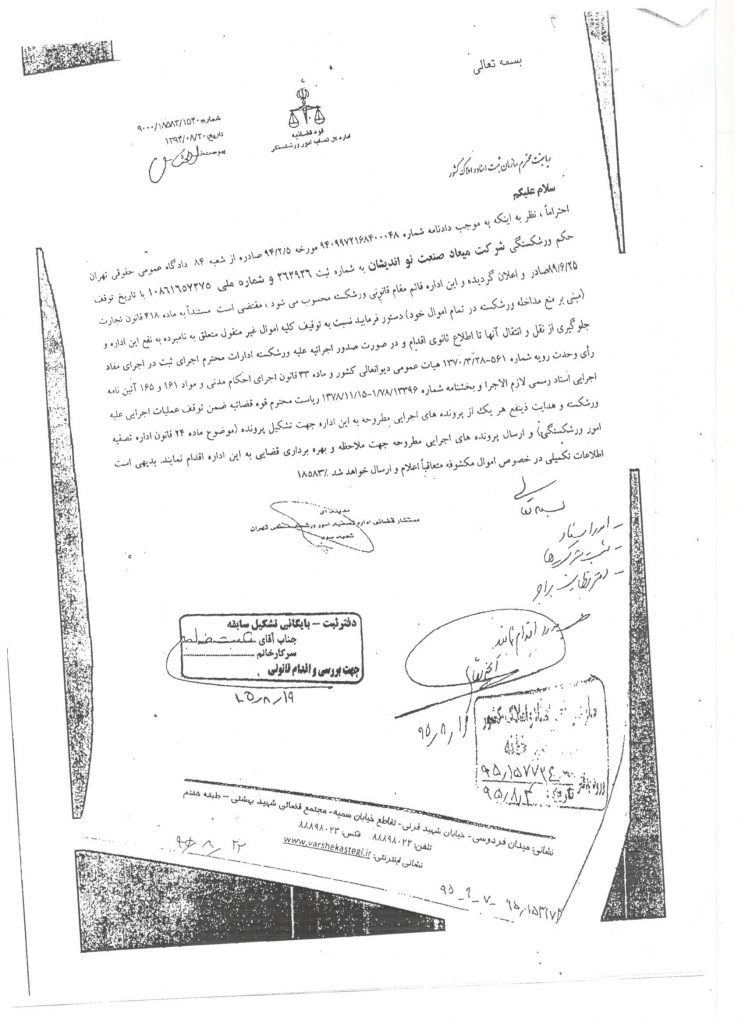 بسمه تعالی
قوه قضائیه
اداره کل تصفیه امور ورشکستگی
شماره: ۹۰۰۰/۱۸۵۸۳/۱۵۴۰
تاریخ: ۱۳۹۴/۰۸/۲۰
پیوست:
ریاست محترم سازمان ثبت اسناد و املاک کشور
سلام علیکم
احتراماً ، نظر به اینکه به موجب دادنامه شماره ۹۴۰۹۹۷۲۱۶۸۴۰۰۰۴۸ مورخه ۹۴/۲/۵ صادره از شعبه ۸۴ دادگاه عمومی حقوقی تهران
حکم ورشکستگی شرکت میعاد صنعت نو اندیشان به شماره ثبت ۳۶۲۹۳۶ و شماره ملی ۱۰۸۶۱۶۵۷۳۷۵ با تاریخ توقف
۸۹/۶/۲۵صادر و اعلان گردیده و این اداره قائم مقام قانونی ورشکسته محسوب می شود ، مقتضی است مستنداً به ماده ۴۱۸ قانون تجارت
(مبنی بر منع مداخله ورشکسته در تمام اموال خود) دستور فرمایید نسبت به توقیف کلیه اموال غیر منقول متعلق به نامبرده به نفع این اداره و
جلوگیری از نقل و انتقال آنها تا اطلاع ثانوی اقدام و در صورت صدور اجرائیه علیه ورشکسته ادارات محترم اجرای ثبت در اجرای مفاد
رأی وحدت رویه شماره ۵۶۱-۱۳۷۰/۳/۲۸ هیات عمومی دیوانعالی کشور و ماده ۳۳ قانون اجرای احکام مدنی و مواد ۱۶۱ و ۱۶۵ آئین نامه
اجرایی اسناد رسمی لازم الاجرا و بخشنامه شماره ۱/۷۸/۱۳۳۹۶-۱۳۷۸/۱۱/۱۵ ریاست محترم قوه قضائیه ضمن توقف عملیات اجرایی علیه
ورشکسته و هدایت ذینفع هر یک از پرونده های اجرایی مطروحه به این اداره جهت تشکیل پرونده (موضوع ماده ۲۴ قانون اداره تصفیه
امور ورشکستگی) و ارسال پرونده های اجرایی مطروحه جهت ملاحظه و بهره برداری قضایی به این اداره اقدام نمایند. بدیهی است
اطلاعات تکمیلی در خصوص اموال مکشوفه متعاقباً اعلام و ارسال خواهد شد /.۱۸۵۸۳
مستشار قضائی اداره تصفیه امور ورشکستگی تهران
بسمه تعالی
- امور اسناد
- ثبت شرکت‌ها
اقدام نمایند
دفتر ثبت – بایگانی تشکیل سابقه
جناب آقای
سرکارخانم
جهت بررسی و اقدام قانونی
۹۵/۸/۱۹
۹۵/۱۵۷۷۲۴
تاریخ: ۹۵/۸/۳
نشانی: میدان فردوسی- خیابان شهید قرنی- تقاطع خیابان سمیه- مجتمع قضائی شهید بهشتی – طبقه هفتم
تلفن: ۸۸۸۹۸۰۲۲ فکس: ۸۸۸۹۸۰۲۳
نشانی اینترنتی: www.varshekastegi.ir
۹۵-۹-۷